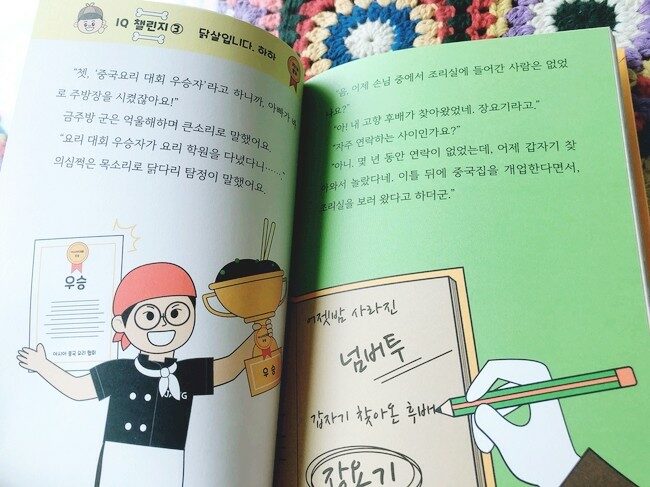 IQ 챌린지 ③ 닭살입니다. 하하
“쳇, ‘중국요리 대회 우승자’라고 하니까, 아빠가
로 주방장을 시켰잖아요!”
금주방 군은 억울해하며 큰소리로 말했어요.
“요리 대회 우승자가 요리 학원을 다녔다니……”
의심쩍은 목소리로 닭다리 탐정이 말했어요.
우승
아시아 중국 요리 협회
우승
“음, 어제 손님 중에서 조리실에 들어간 사람은 없었
나요?”
“아! 내 고향 후배가 찾아왔었네. 장요기라고.”
“자주 연락하는 사이인가요?”
“아니. 몇 년 동안 연락이 없었는데, 어제 갑자기 찾
아와서 놀랐다네. 이틀 뒤에 중국집을 개업한다면서,
조리실을 보러 왔다고 하더군.”
어젯밤 사라진
넘버투
갑자기 찾아온 후배
장요기